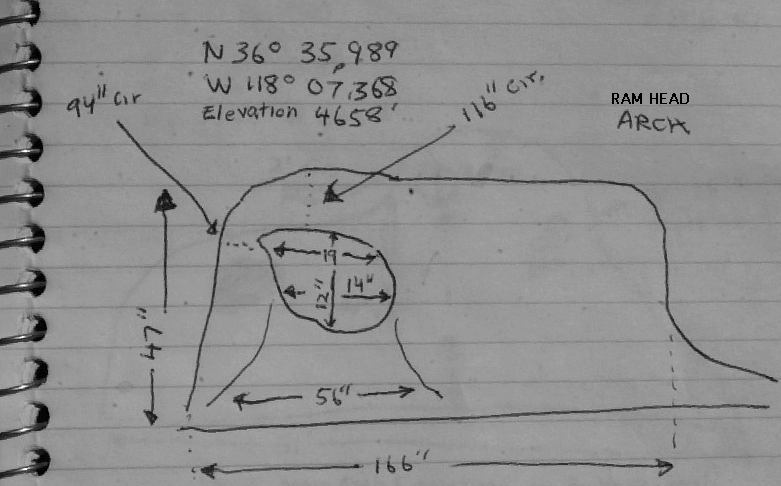 N 36° 35,989
W 118° 07,368
Elevation 4658'
94" cir
116" cir.
RAM HEAD
ARCH
19
12"
14"
47"
56"
166"